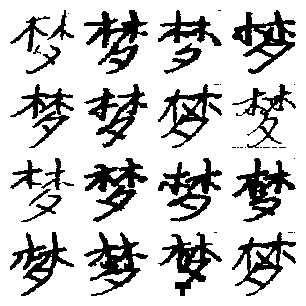 梦梦梦梦
梦梦梦梦
梦梦梦梦
梦梦梦梦